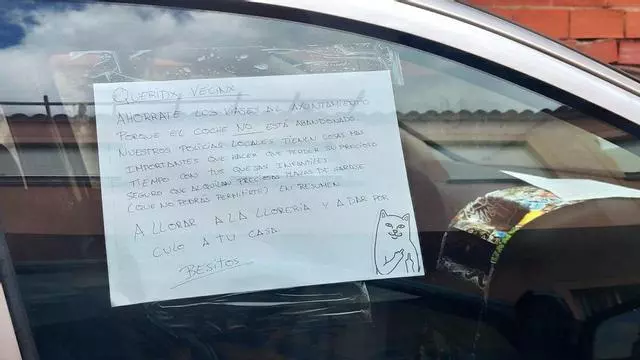 QUERIDX VECINX
AHORRATE LOS VIAJES AL AYUNTAMIENTO
PORQUE EL COCHE NO ESTÁ ABANDONADO.
NUESTROS POLICÍAS LOCALES TIENEN COSAS MÁS
IMPORTANTES QUE HACER QUE PERDER SU PRECIOSO
TIEMPO CON TUS QUEJAS INFANTILES
SEGURO QUE ALQUILAN PRECIOSAS PLAZAS DE GARAJE
(QUE NO PODRÁS PERMITIRTE) EN RESUMEN
A LLORAR A LA LLORERÍA Y A DAR POR
CULO A TU CASA.
BESITOS